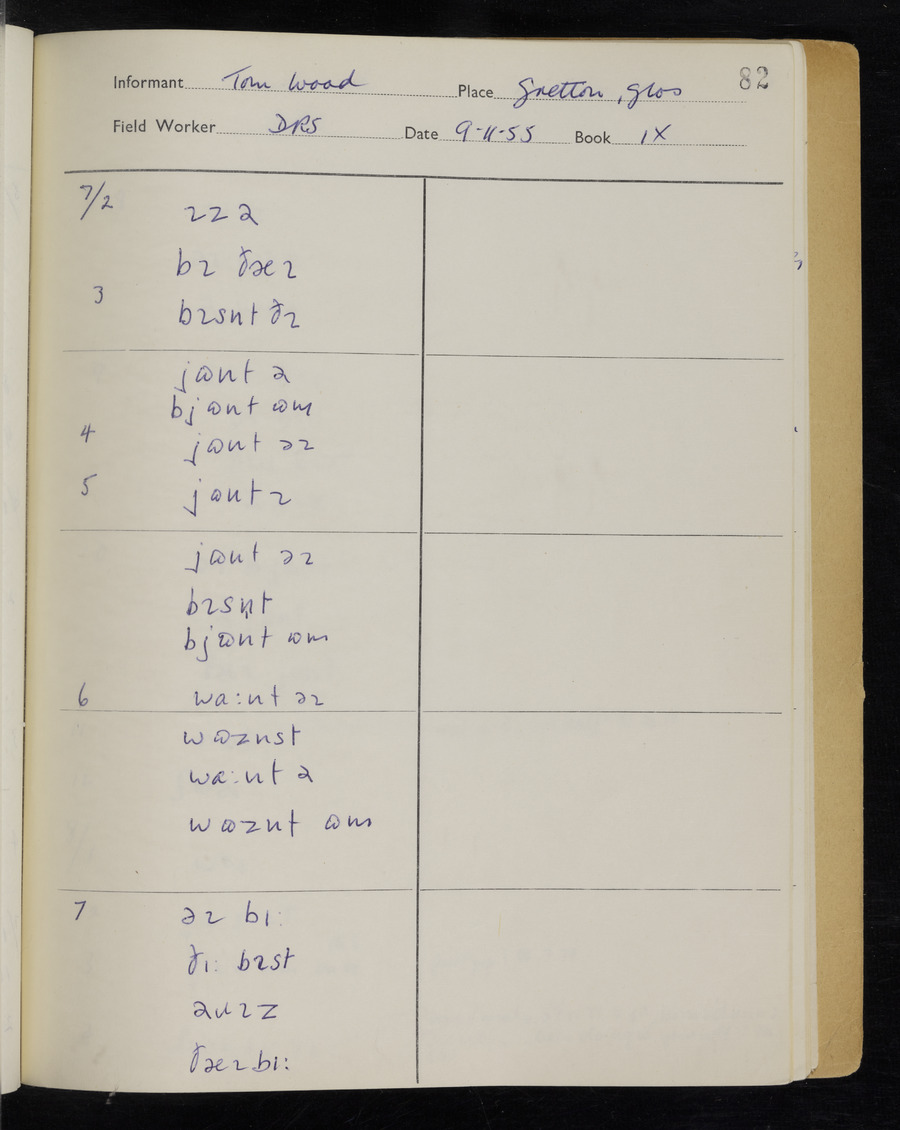 Informant Tom Wood Place Gretton, Glos 82
Field Worker DRS Date 9-11-55 Book IX
7/2 ɪz ə
bɪ ðæɪ
3 bɪsnt ðɪ
jɒnt ə
bjɒnt ɒm
4 jɒnt əɪ
5 jɒnt ɪ
jɒnt əɪ
bɪsn̩t
bjɒnt ɒm
6 wa:nt əɪ
wɒznst
wa:nt ə
wɒznt ɒm
7 əɪ bi:
ði: bɪst
ənɪz
ðæɪ bi: